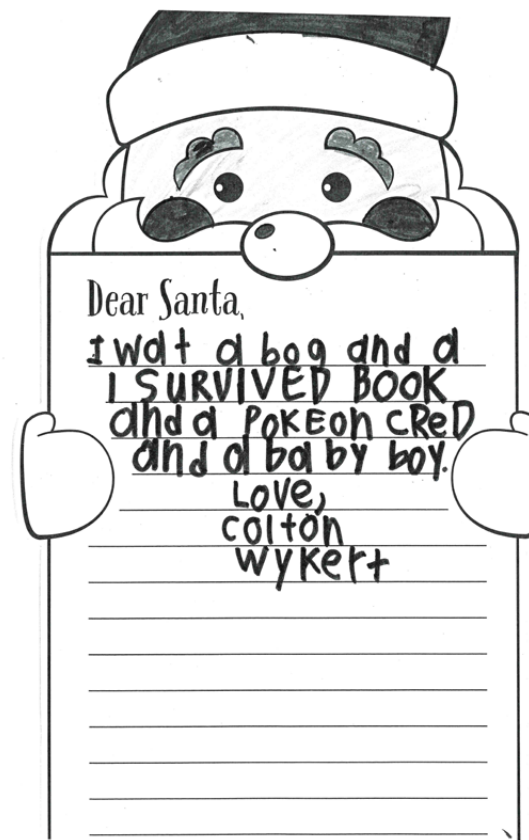 Dear Santa,
I wat a bog and a
I SURVIVED BOOK
and a POKEon CReD
and a baby boy.
Love,
colton
wykert